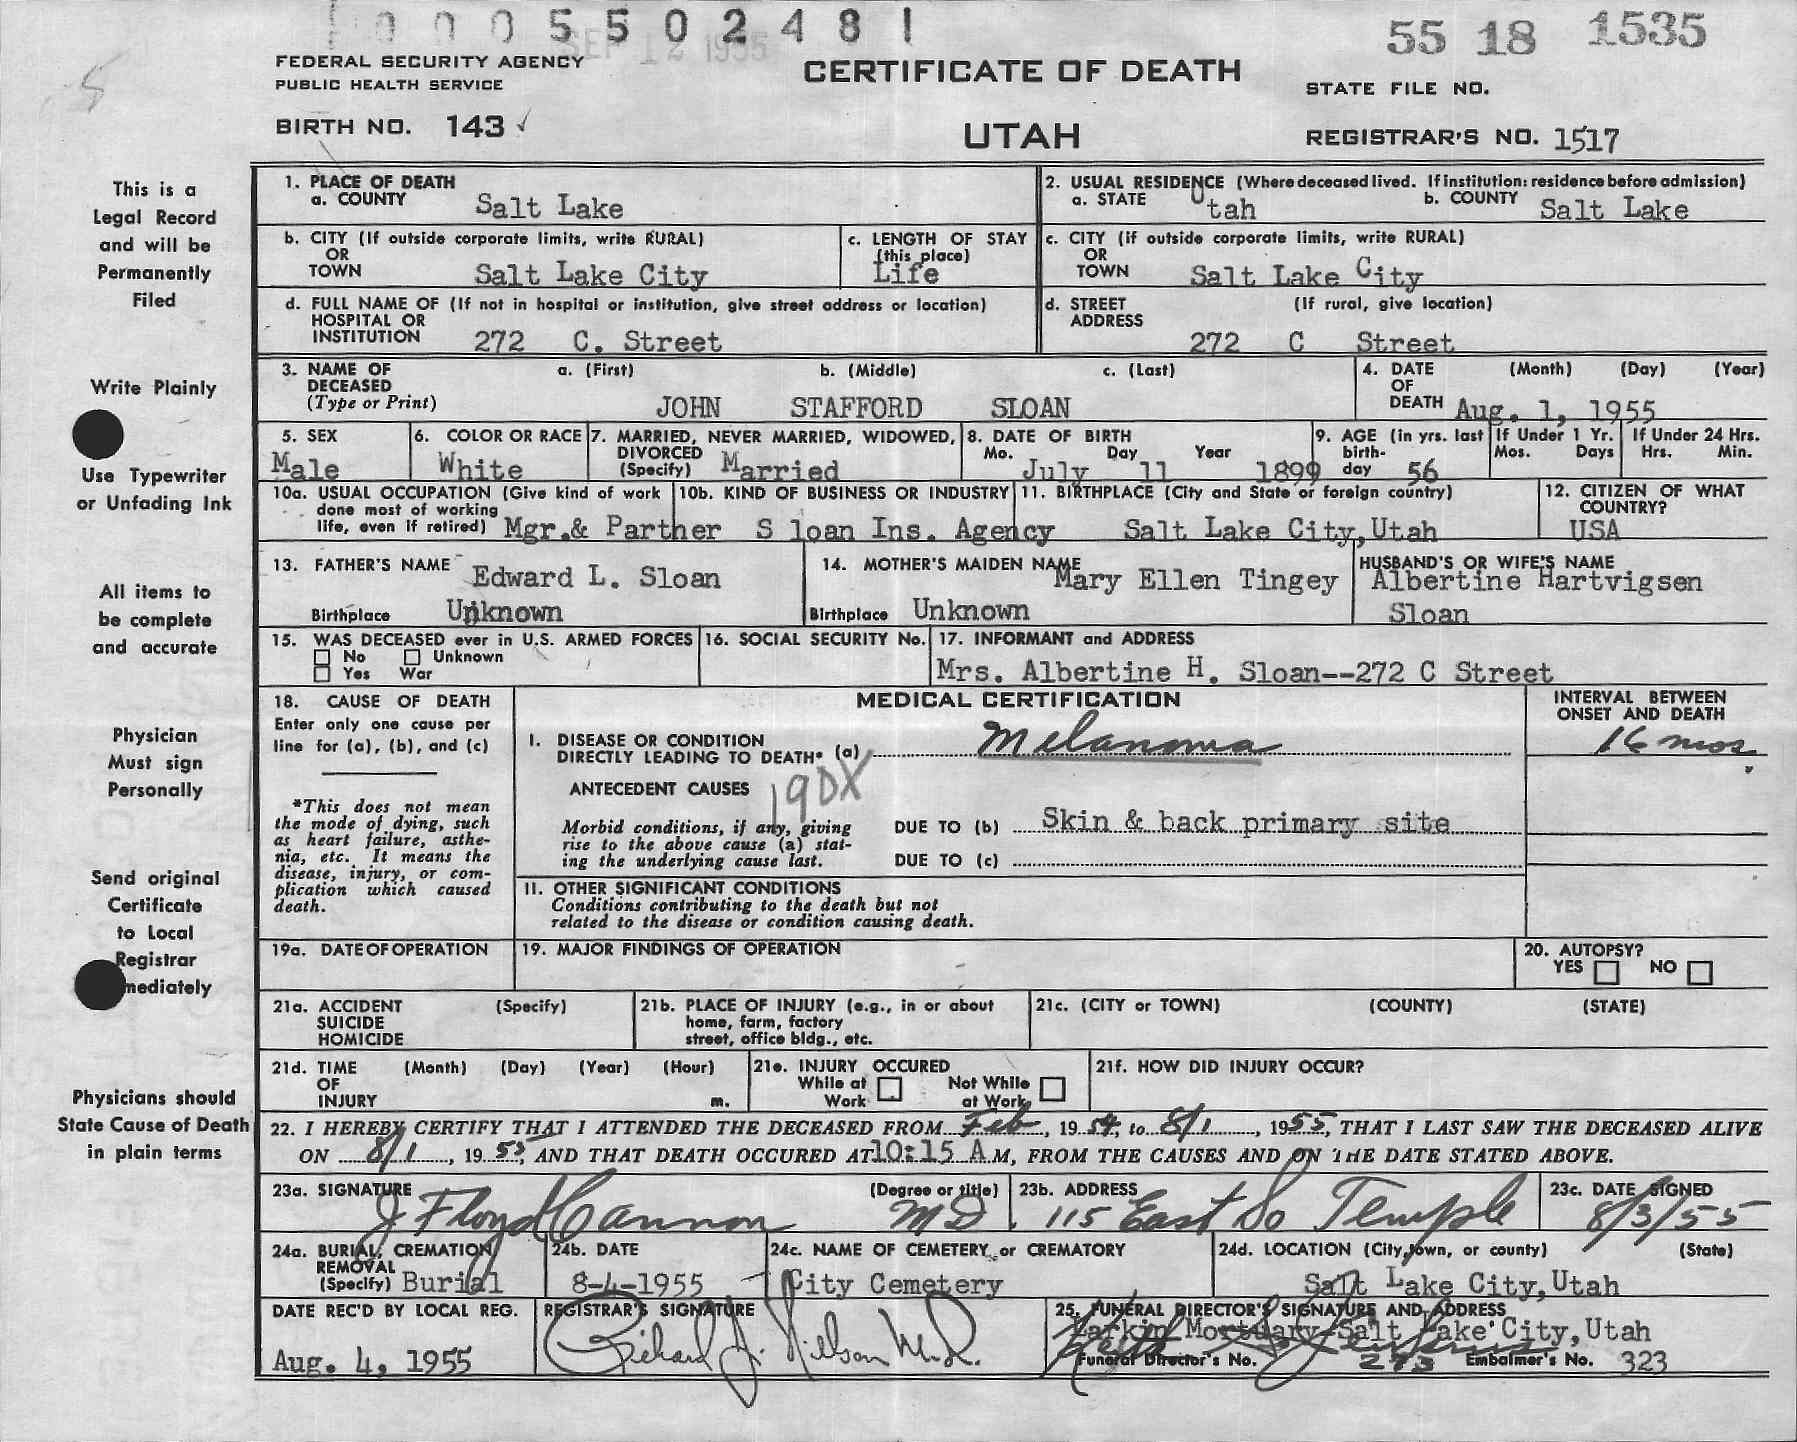 0005502481
SEP 12 1955
55 18 1535
FEDERAL SECURITY AGENCY
PUBLIC HEALTH SERVICE
CERTIFICATE OF DEATH
STATE FILE NO.
BIRTH NO. 143 ✓
UTAH
REGISTRAR'S NO. 1517
This is a
Legal Record
and will be
Permanently
Filed
Write Plainly
Use Typewriter
or Unfading Ink
All items to
be complete
and accurate
Physician
Must sign
Personally
Send original
Certificate
to Local
Registrar
mediately
Physicians should
State Cause of Death
in plain terms
1. PLACE OF DEATH
a. COUNTY Salt Lake
2. USUAL RESIDENCE (Where deceased lived. If institution: residence before admission)
a. STATE Utah b. COUNTY Salt Lake
b. CITY (If outside corporate limits, write RURAL)
OR
TOWN Salt Lake City
c. LENGTH OF STAY
(this place)
Life
c. CITY (if outside corporate limits, write RURAL)
OR
TOWN Salt Lake City
d. FULL NAME OF (If not in hospital or institution, give street address or location)
HOSPITAL OR
INSTITUTION 272 C. Street
d. STREET (If rural, give location)
ADDRESS
272 C Street
3. NAME OF a. (First) b. (Middle) c. (Last)
DECEASED
(Type or Print) JOHN STAFFORD SLOAN
4. DATE (Month) (Day) (Year)
OF
DEATH Aug. 1, 1955
5. SEX
Male
6. COLOR OR RACE
White
7. MARRIED, NEVER MARRIED, WIDOWED,
DIVORCED
(Specify) Married
8. DATE OF BIRTH
Mo. Day Year
July 11 1899
9. AGE (in yrs. last
birth-
day 56
If Under 1 Yr.
Mos. Days
If Under 24 Hrs.
Hrs. Min.
10a. USUAL OCCUPATION (Give kind of work
done most of working
life, even if retired) Mgr.& Parther
10b. KIND OF BUSINESS OR INDUSTRY
S loan Ins. Agency
11. BIRTHPLACE (City and State or foreign country)
Salt Lake City,Utah
12. CITIZEN OF WHAT
COUNTRY?
USA
13. FATHER'S NAME Edward L. Sloan
Birthplace Unknown
14. MOTHER'S MAIDEN NAME
Mary Ellen Tingey
Birthplace Unknown
HUSBAND'S OR WIFE'S NAME
Albertine Hartvigsen
Sloan
15. WAS DECEASED ever in U.S. ARMED FORCES
No Unknown
Yes War
16. SOCIAL SECURITY No.
17. INFORMANT and ADDRESS
Mrs. Albertine H. Sloan--272 C Street
18. CAUSE OF DEATH
Enter only one cause per
line for (a), (b), and (c)
*This does not mean
the mode of dying, such
as heart failure, asthe-
nia, etc. It means the
disease, injury, or com-
plication which caused
death.
MEDICAL CERTIFICATION
INTERVAL BETWEEN
ONSET AND DEATH
I. DISEASE OR CONDITION
DIRECTLY LEADING TO DEATH* (a) Melanoma
16 mos
ANTECEDENT CAUSES 190X
Morbid conditions, if any, giving
rise to the above cause (a) stat-
ing the underlying cause last.
DUE TO (b) Skin & back primary site
DUE TO (c)
II. OTHER SIGNIFICANT CONDITIONS
Conditions contributing to the death but not
related to the disease or condition causing death.
19a. DATE OF OPERATION
19. MAJOR FINDINGS OF OPERATION
20. AUTOPSY?
YES NO
21a. ACCIDENT (Specify)
SUICIDE
HOMICIDE
21b. PLACE OF INJURY (e.g., in or about
home, farm, factory
street, office bldg., etc.
21c. (CITY or TOWN) (COUNTY) (STATE)
21d. TIME (Month) (Day) (Year) (Hour)
OF
INJURY m.
21e. INJURY OCCURED
While at Not While
Work at Work
21f. HOW DID INJURY OCCUR?
22. I HEREBY CERTIFY THAT I ATTENDED THE DECEASED FROM Feb, 1954, to 8/1, 1955, THAT I LAST SAW THE DECEASED ALIVE
ON 8/1, 1955, AND THAT DEATH OCCURED AT 10:15 A M, FROM THE CAUSES AND ON THE DATE STATED ABOVE.
23a. SIGNATURE (Degree or title)
J Floyd Cannon MD.
23b. ADDRESS
115 East So Temple
23c. DATE SIGNED
8/3/55
24a. BURIAL, CREMATION,
REMOVAL
(Specify) Burial
24b. DATE
8-4-1955
24c. NAME OF CEMETERY or CREMATORY
City Cemetery
24d. LOCATION (City, town, or county) (State)
Salt Lake City,Utah
DATE REC'D BY LOCAL REG.
Aug. 4, 1955
REGISTRAR'S SIGNATURE
Richard J. Nilson M.D.
25. FUNERAL DIRECTOR'S SIGNATURE AND ADDRESS
Larkin Mortuary-Salt Lake City, Utah
Funeral Director's No. 273 Embalmer's No. 323